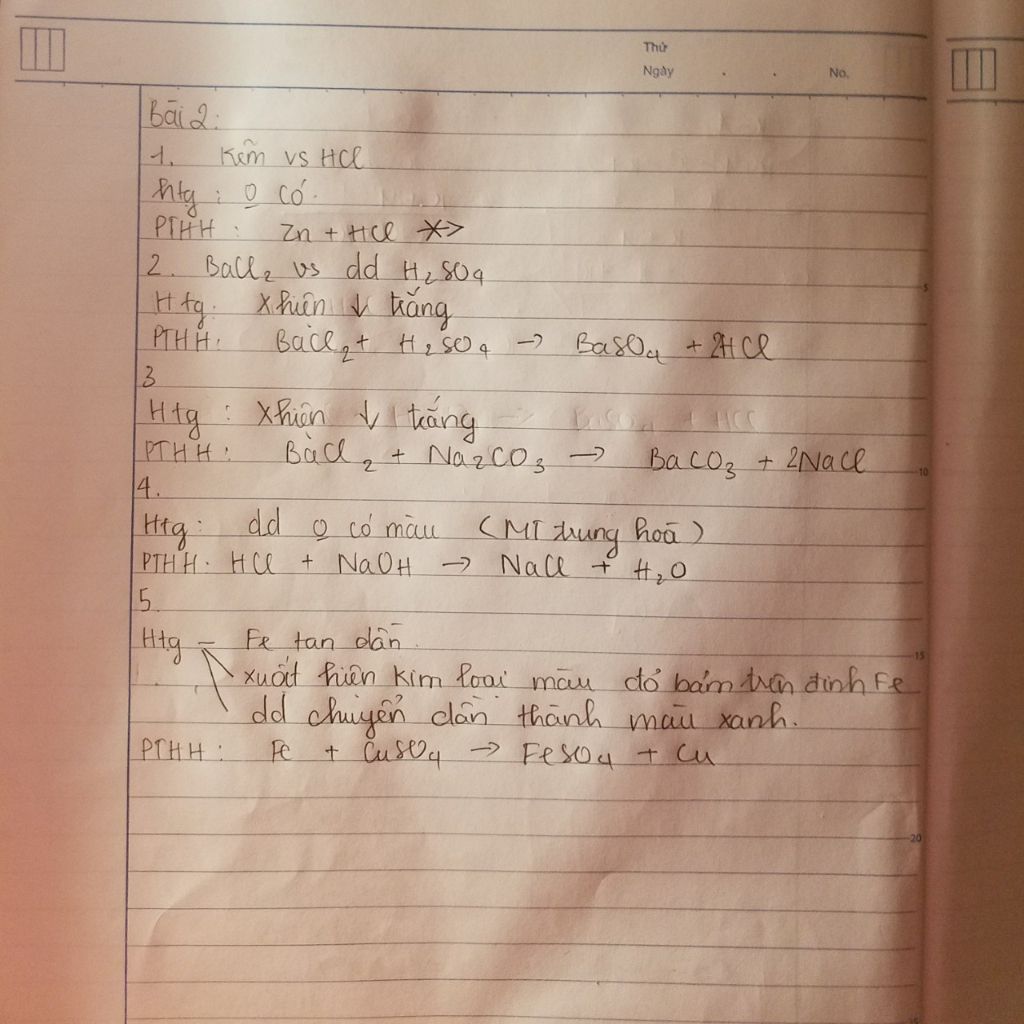 Thứ
Ngày . . No.
Bài 2:
1. Kẽm vs HCl
Htg : O̲ có.
PTHH : Zn + HCl -X->
2. BaCl₂ vs dd H₂SO₄
Htg: Xhiện ↓ trắng
PTHH: BaCl₂ + H₂SO₄ → BaSO₄ + 2HCl
5
3
Htg : Xhiện ↓ trắng
PTHH: BaCl₂ + Na₂CO₃ → BaCO₃ + 2NaCl
10
4.
Htg: dd O̲ có màu (MT trung hoà)
PTHH: HCl + NaOH → NaCl + H₂O
5.
Htg – Fe tan dần.
15
xuất hiện kim loại màu đỏ bám trên đinh Fe
dd chuyển dần thành màu xanh.
PTHH: Fe + CuSO₄ → FeSO₄ + Cu
20